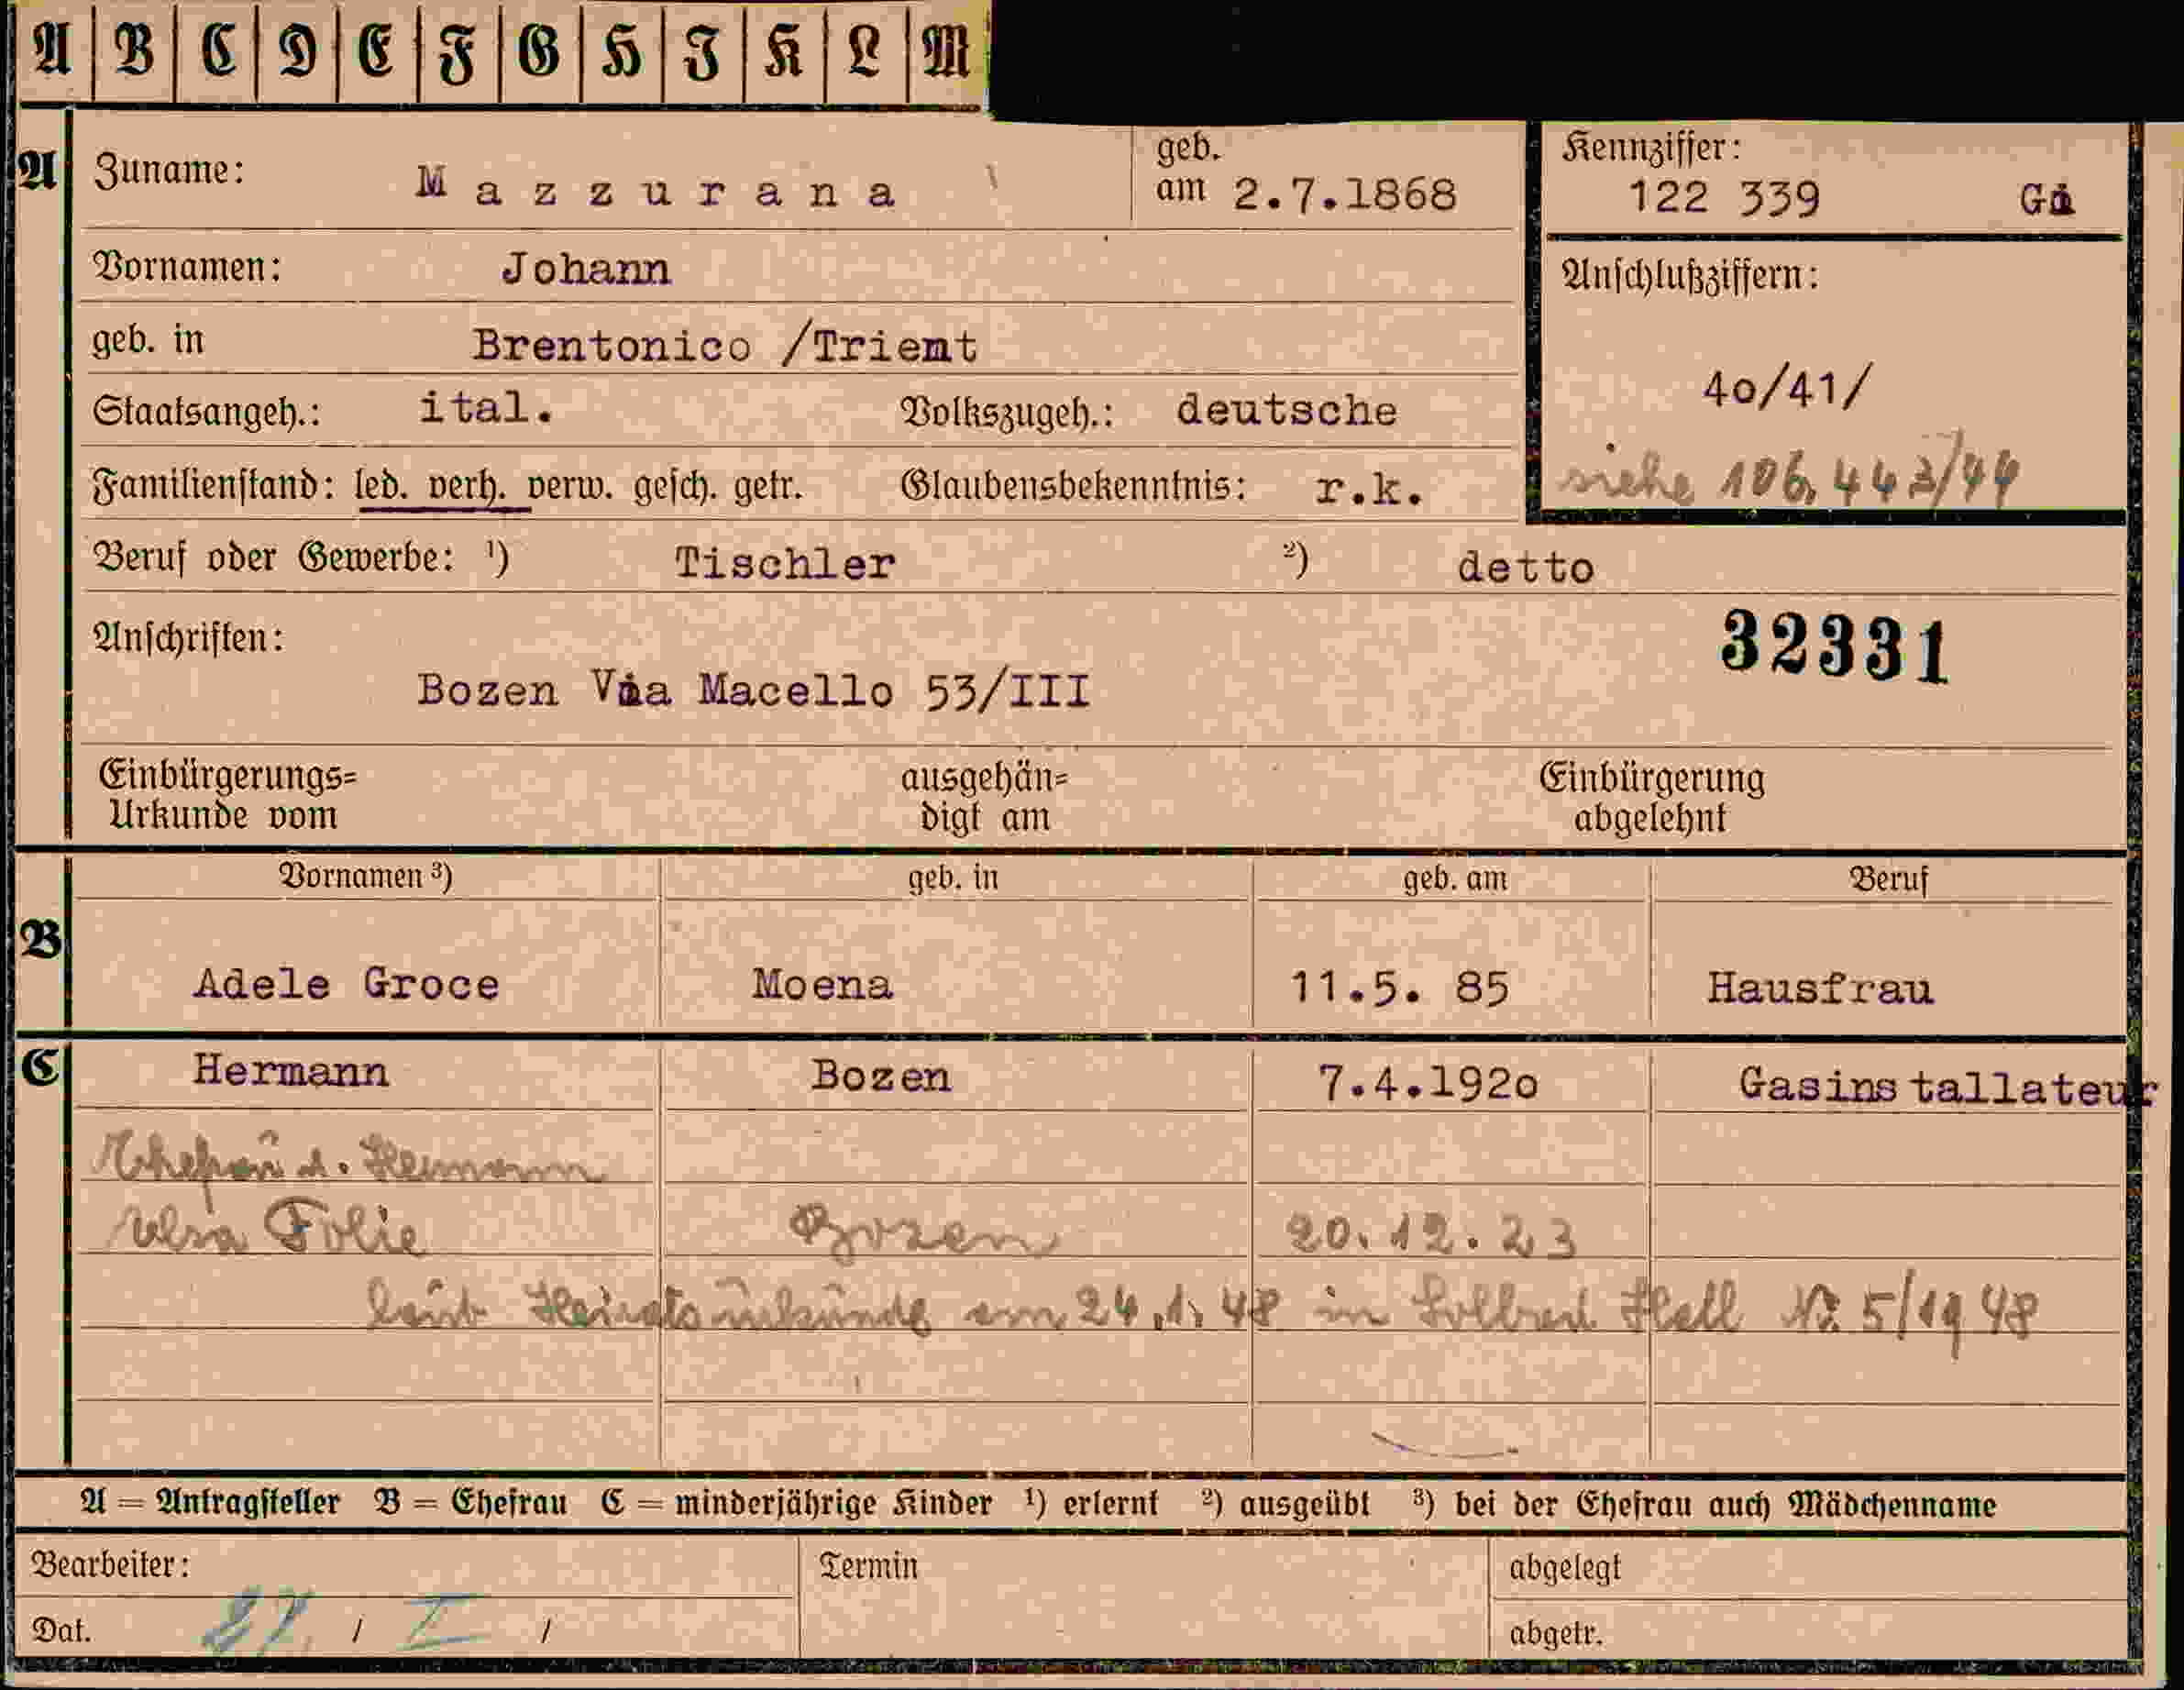 A B C D E F G H J K L M
A Zuname: Mazzurana geb. am 2.7.1868
Kennziffer: 122 339 Gä
Vornamen: Johann
Anschlußziffern:
geb. in Brentonico /Trient
40/41/
Staatsangeh.: ital. Volkszugeh.: deutsche
siehe 106,443/44
Familienstand: led. verh. verw. gesch. getr. Glaubensbekenntnis: r.k.
Beruf oder Gewerbe: ¹) Tischler ²) detto
Anschriften:
32331
Bozen Via Macello 53/III
Einbürgerungs= ausgehän= Einbürgerung
Urkunde vom digt am abgelehnt
Vornamen ³) geb. in geb. am Beruf
B
Adele Groce Moena 11.5. 85 Hausfrau
C Hermann Bozen 7.4.1920 Gasinstallateur
Ehefrau d. Hermann
Folie Bozen 20.12.23
laut Heiratsurkunde am 24.1.48 in Solbad Hall Nr. 5/1948
A = Antragsteller B = Ehefrau C = minderjährige Kinder ¹) erlernt ²) ausgeübt ³) bei der Ehefrau auch Mädchenname
Bearbeiter: Termin abgelegt
Dat. 27. / I / abgetr.